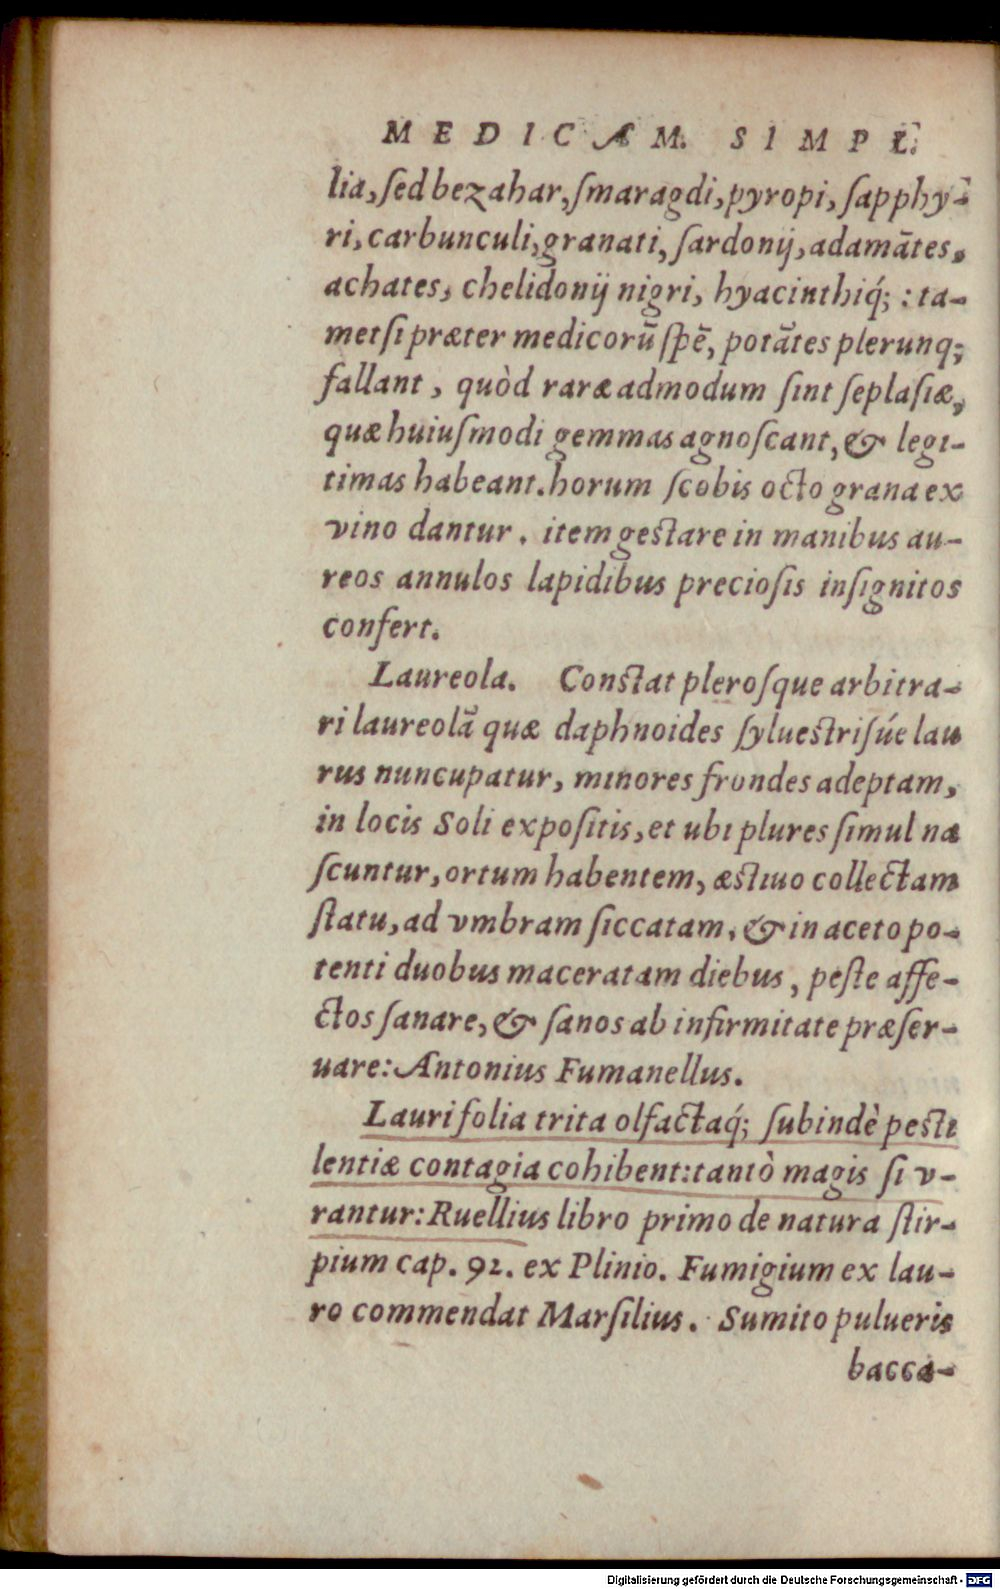 MEDICÆM. SIMPL.
lia, ſed bezahar, ſmaragdi, pyropi, ſapphy-
ri, carbunculi, granati, ſardonij, adamātes,
achates, chelidonij nigri, hyacinthiq́; : ta-
metſi præter medicorū ſpē, potātes plerunq;
fallant, quòd raræ admodum ſint ſeplaſiæ,
quæ huiuſmodi gemmas agnoſcant, & legi-
timas habeant. horum ſcobis octo grana ex
vino dantur. item geſtare in manibus au-
reos annulos lapidibus precioſis inſignitos
confert.
Laureola. Conſtat pleroſque arbitra-
ri laureolā quæ daphnoides ſylueſtriſúe lau
rus nuncupatur, minores frondes adeptam,
in locis Soli expoſitis, et ubi plures ſimul na
ſcuntur, ortum habentem, æſtiuo collectam
ſtatu, ad vmbram ſiccatam, & in aceto po-
tenti duobus maceratam diebus, peſte affe-
ctos ſanare, & ſanos ab infirmitate præſer-
uare: Antonius Fumanellus.
Lauri folia trita olfactaq́; ſubindè peſti
lentiæ contagia cohibent: tantò magis ſi v-
rantur: Ruellius libro primo de natura ſtir-
pium cap. 92. ex Plinio. Fumigium ex lau-
ro commendat Marſilius. Sumito pulueris
bacca-
Digitalisierung gefördert durch die Deutsche Forschungsgemeinschaft - DFG